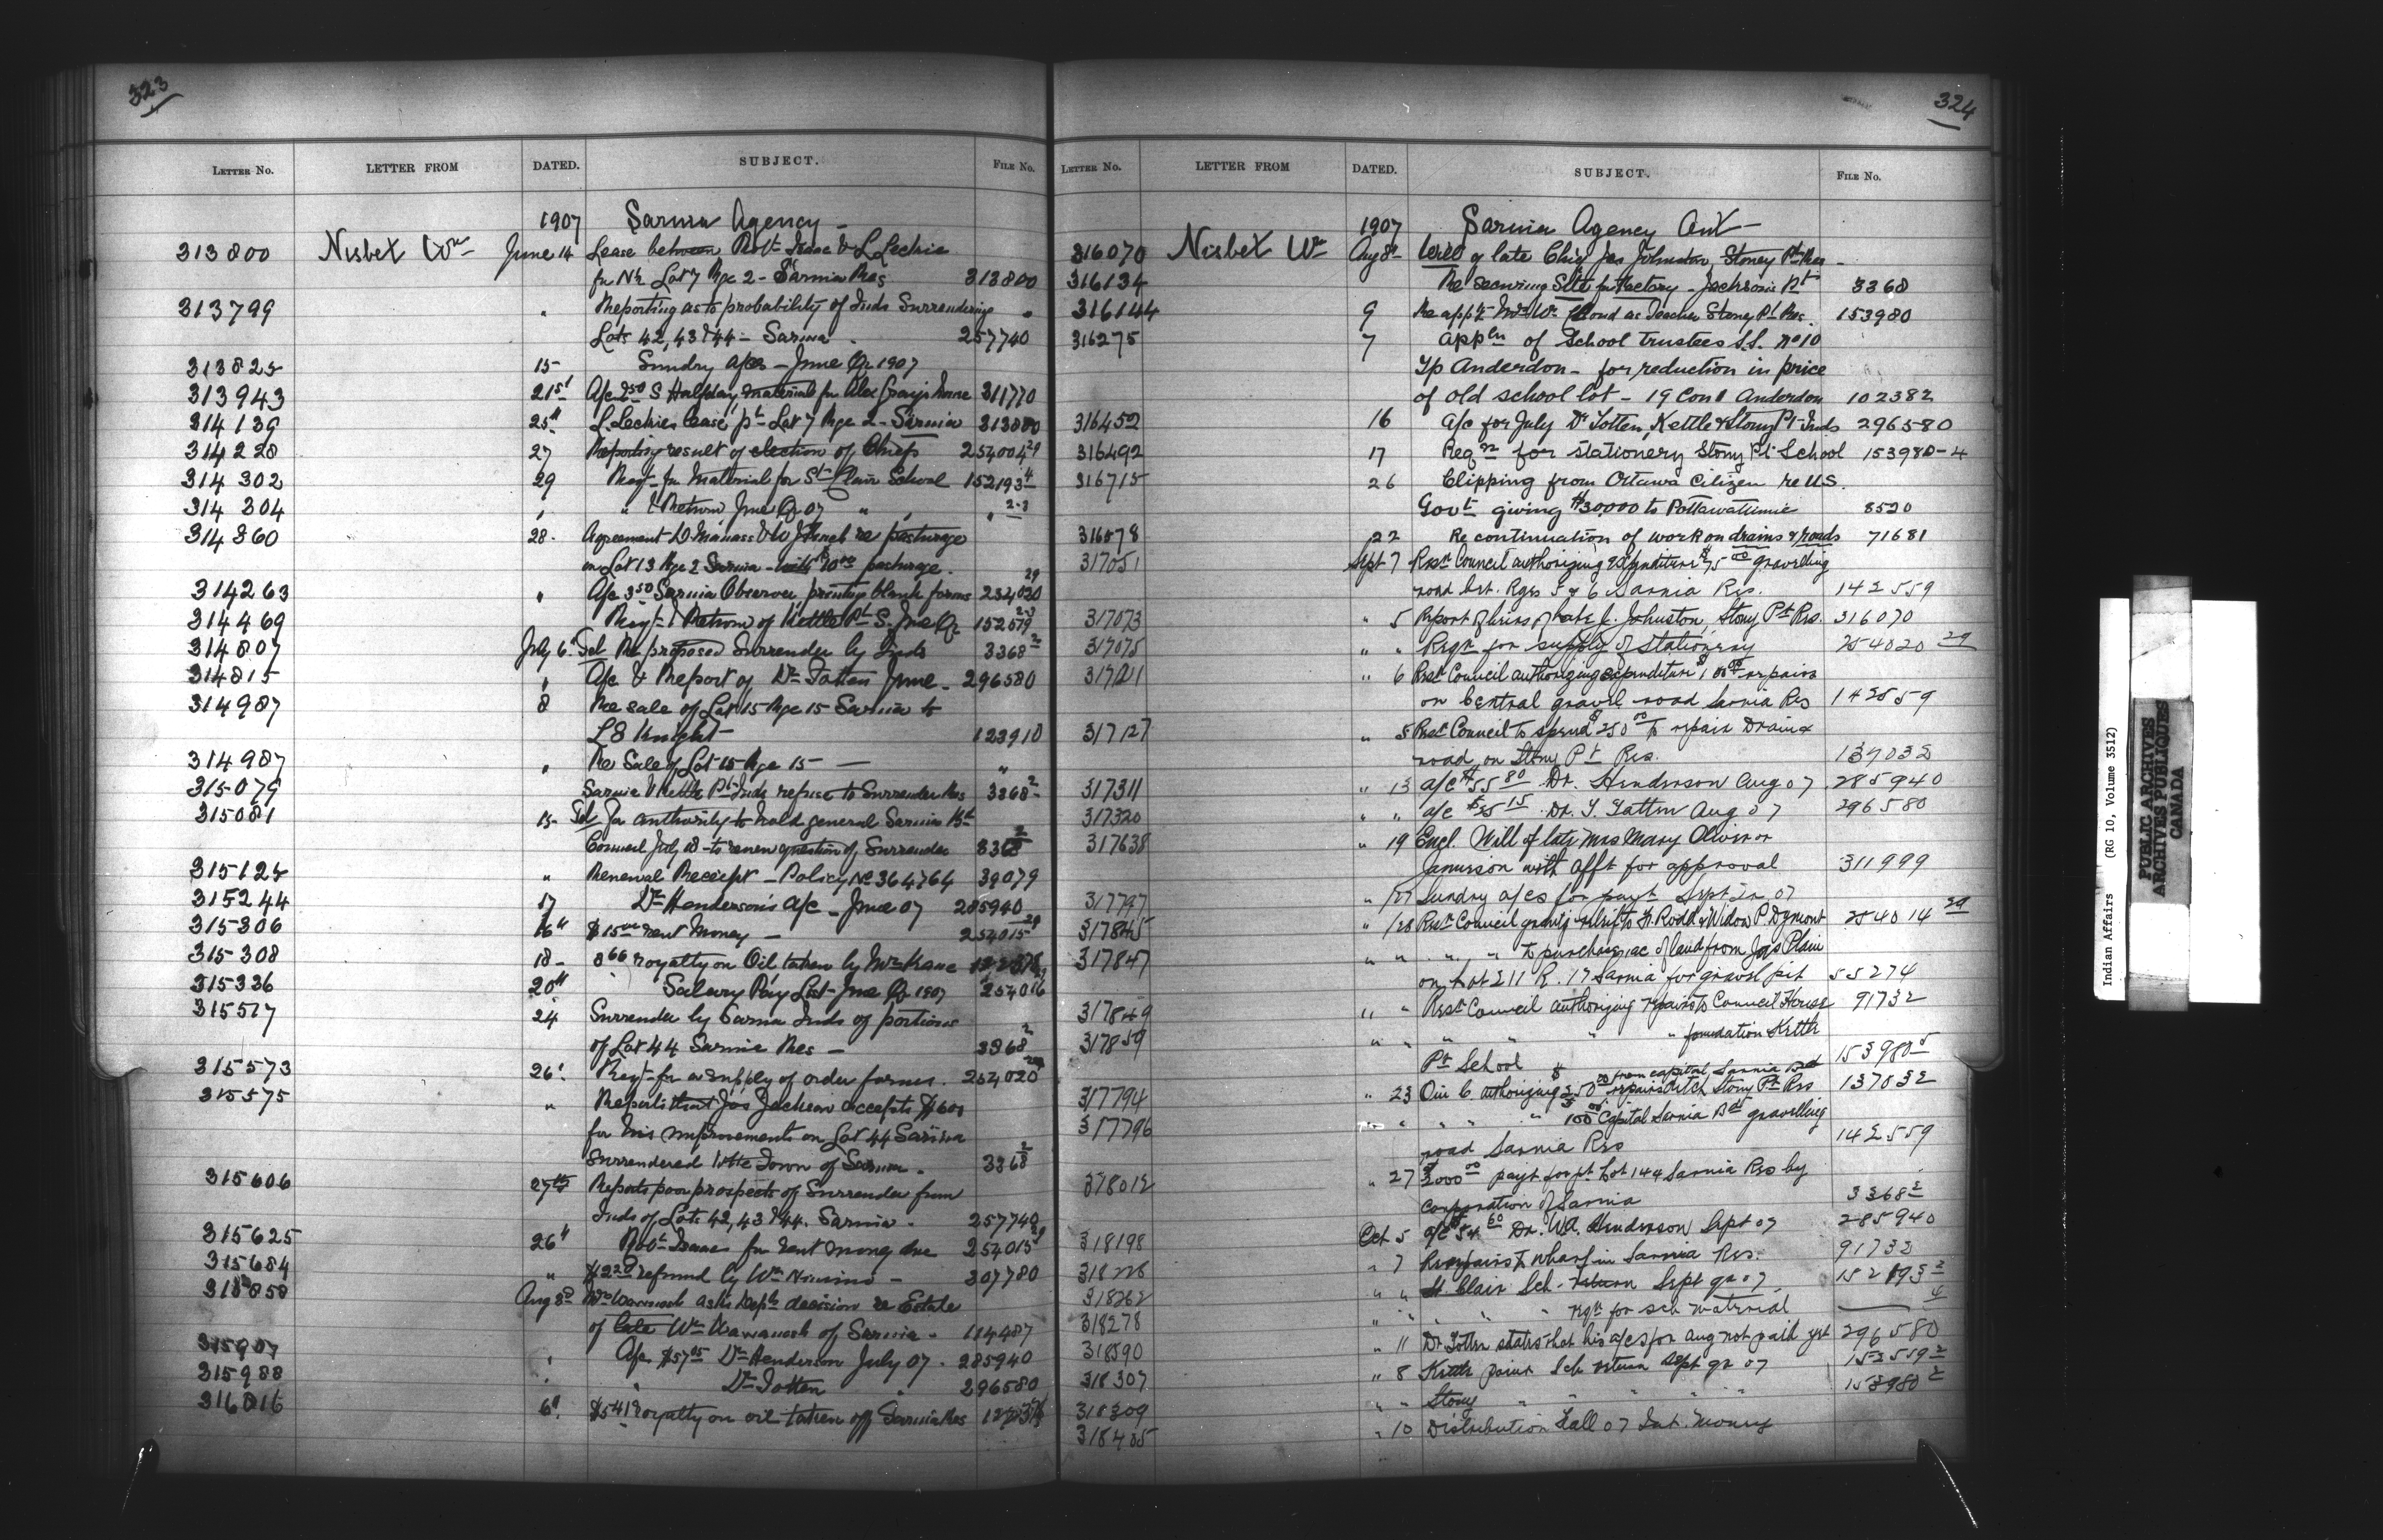 323
LETTER NO. LETTER FROM DATED. SUBJECT. FILE NO.
1907 Sarnia Agency -
313800 Nisbet Wm June 14 Lease between Robt Isaac & L Leckie
for N½ Lot 7 Rge 2 - Sarnia Res 313800
313799 " Reporting as to probability of Inds Surrendering
Lots 42, 43 & 44 - Sarnia 257740
313825 15- Sundry a/cs - June Qr 1907
313943 21st A/c S Halfday, material for Alex Gray's house 311770
314139 25" L. Leckies lease pt Lot 7 Rge 2 - Sarnia 313800
314228 27 Reporting result of election of Chiefs 254004 29
314302 29 Reqt for Material for St Clair School 152193 4
314304 " " & Return June Qr 07 " " " 2-3
314360 28- Agreement D. Manass & W J French re pasturage
on Lot 13 Rge 2 Sarnia - pasturage.
314263 " A/c 3 50 Sarnia Observer printing blank forms 254020 29
314469 Reqt & Return of Kettle Pt S. June Qr 152519 2-3
314807 July 6 Tel Re proposed Surrender by Inds 3368 2
314815 " A/c & Report of Dr Totten June - 296580
314987 8 Re sale of Lot 15 Rge 15 Sarnia to
L E Knight 123910
314987 " Re Sale of Lot 15 Rge 15 — "
315079 Sarnia & Kettle Pt Inds refuse to Surrender Res 3368 2
315081 15- Tel for authority to hold general Sarnia Bd
Council July 18 - to renew question of Surrender 3368 2
315125 " Renewal Receipt - Policy No 364764 39079
315244 17 Dr Henderson's a/c - June 07 285940
315306 16" $15 00 rent Money — 254015 29
315308 18- 8 66 royalty on Oil taken by Mr Kane
315336 20" Salary Pay List - June Qr 1907 254016
315517 24 Surrender by Sarnia Inds of portions
of Lot 44 Sarnia Res - 3368 2
315573 26" Reqt for a supply of order forms. 254020 29
315575 " Reports that Jas Jackson accepts $600
for his improvements on Lot 44 Sarnia
Surrendered to the Town of Sarnia. 3368 2
315606 27th Reports poor prospects of Surrender from
Inds of Lots 42, 43 & 44. Sarnia. 257740
315625 26" Robt Isaac for rent money due 254015 29
315684 " refund by Wm Nimmo - 307780
315858 Aug 3rd Wawanosh asks Depts decision re Estate
of late Wm Wawanosh of Sarnia - 114487
315907 " A/c $57 05 Dr Henderson July 07. 285940
315988 " " Dr Totten " 296580
316016 6" $5 41 royalty on oil taken off Sarnia Res
324
LETTER NO. LETTER FROM DATED. SUBJECT. FILE NO.
1907 Sarnia Agency Ont -
316070 Nisbet Wm Aug 8th Will of late Chief Jas Johnston Stoney Pt Res -
316134 Re securing Site for Factory - Jackson's Pt 3368
316144 9 Re appt Mrs Wm Cloud as Teacher Stoney Pt Res. 153980
316275 7 appln of School trustees S.S. No 10
Tp Anderdon - for reduction in price
of old school lot - 19 Con 1 Anderdon 102382
316452 16 a/c for July Dr Totten, Kettle & Stony Pt Inds 296580
316492 17 Reqn for stationery Stony Pt School 153980-4
316715 26 Clipping from Ottawa Citizen re U.S.
Govt giving $30,000 to Pottawattimie 8520
316878 22 Re continuation of work on drains & roads 71681
317051 Sept 7 Resn Council authorizing expenditure $75 00 gravelling
road bet. Rges 5 & 6 Sarnia Res. 142559
317073 " 5 Report of heirs of late J. Johnston, Stony Pt Res. 316070
317075 " " Reqn for supply of stationery 254020 29
317121 " 6 Resn Council authorizing expenditure $100 00 repairs
on Central gravel road Sarnia Res 142559
317127 " 5 Resn Council to spend $250 00 to repair Drain &
road on Stony Pt Res. 137032
317311 " 13 a/c $55 80 Dr. Henderson Aug 07. 285940
317320 " " a/c Dr. T. Totten Aug 07 296580
317638 " 19 Encl. Will of late Mrs Mary Oliver or
Jamieson with Afft for approval 311999
317797 " 27 Sundry a/cs for payt Sept Qr 07
317845 " 28 Resn Council granting relief to H. Rodd & Widow P. Dymont 254014 29
317847 " " " " to purchase ac of land from Jas Plain
on Lot E 11 R. 17 Sarnia for gravel pit 55274
317849 " " Resn Council authorizing repairs to Council House 91732
317859 " " " " " " foundation Kettle
Pt School 153980 5
317794 " 23 Oin C. authorizing $250 00 from capital Sarnia Bd repairs ditch Stony Pt Res 137032
317796 " " " " 100 00 Capital Sarnia Bd gravelling
road Sarnia Res 142559
318012 " 27 $2000 00 payt for pt Lot 144 Sarnia Res by
Corporation of Sarnia 3368 2
318198 Oct 5 a/c Dr. W.A. Henderson Sept 07 285940
318226 " 7 Re repairs to Wharf in Sarnia Res. 91732
318262 " " St. Clair Sch. return Sept qr 07 152193 2
318278 " " " reqn for sch material — 4
318590 " 11 Dr Totten states that his a/cs for Aug not paid yet 296580
318307 " 8 Kettle Point Sch return Sept qr 07 152519 2
318309 " " Stony " " " " " 153980 2
318405 " 10 Distribution Fall 07 Int. Money
Indian Affairs (RG 10, Volume 3512)
PUBLIC ARCHIVES
ARCHIVES PUBLIQUES
CANADA